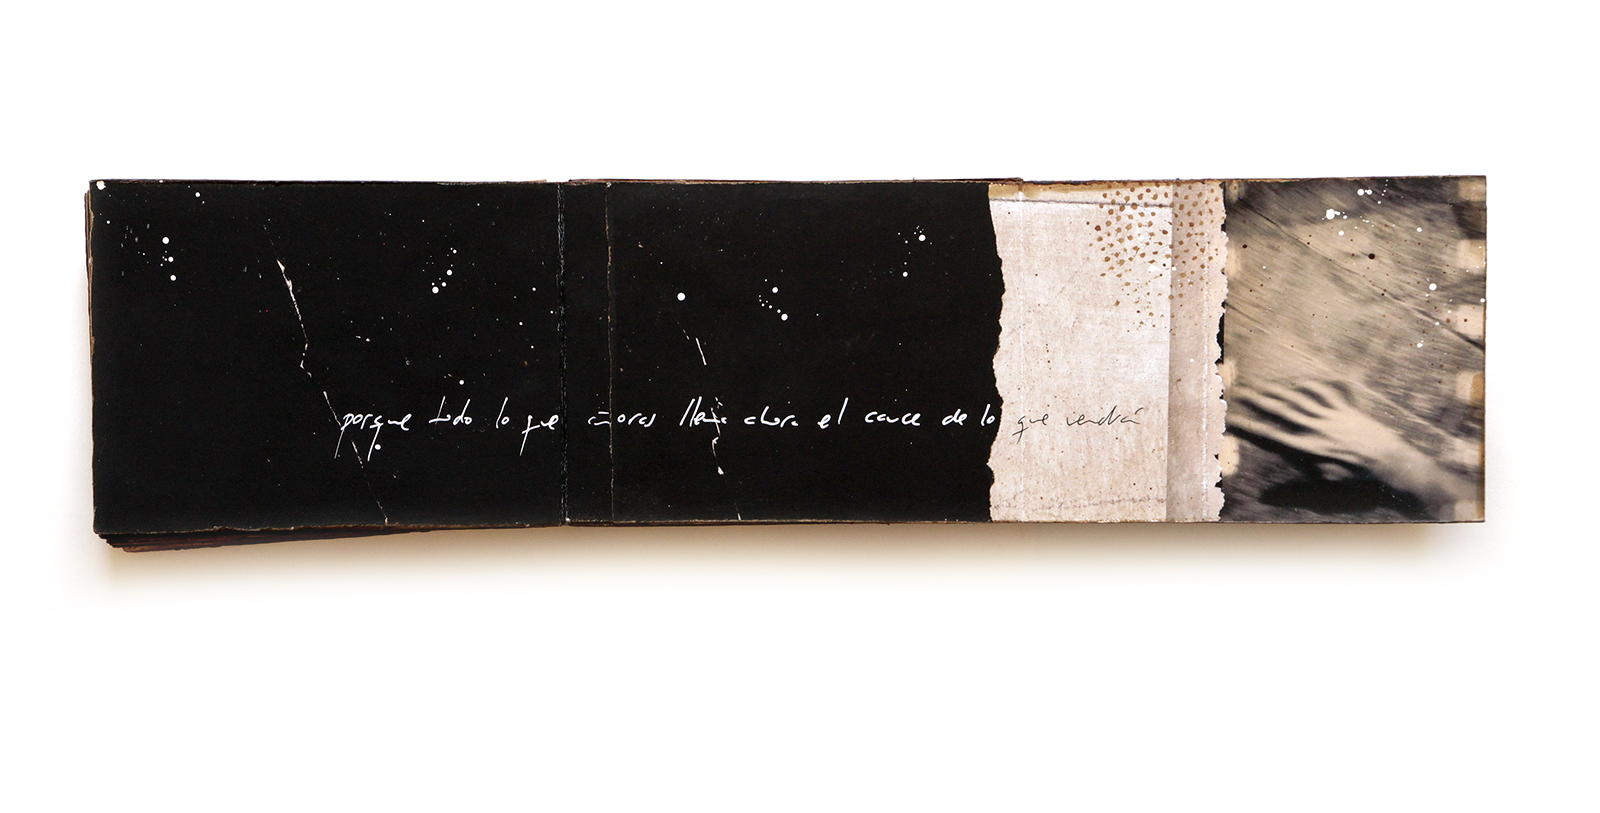 porque todo lo que añoras llena ahora el cauce de lo que vendrá